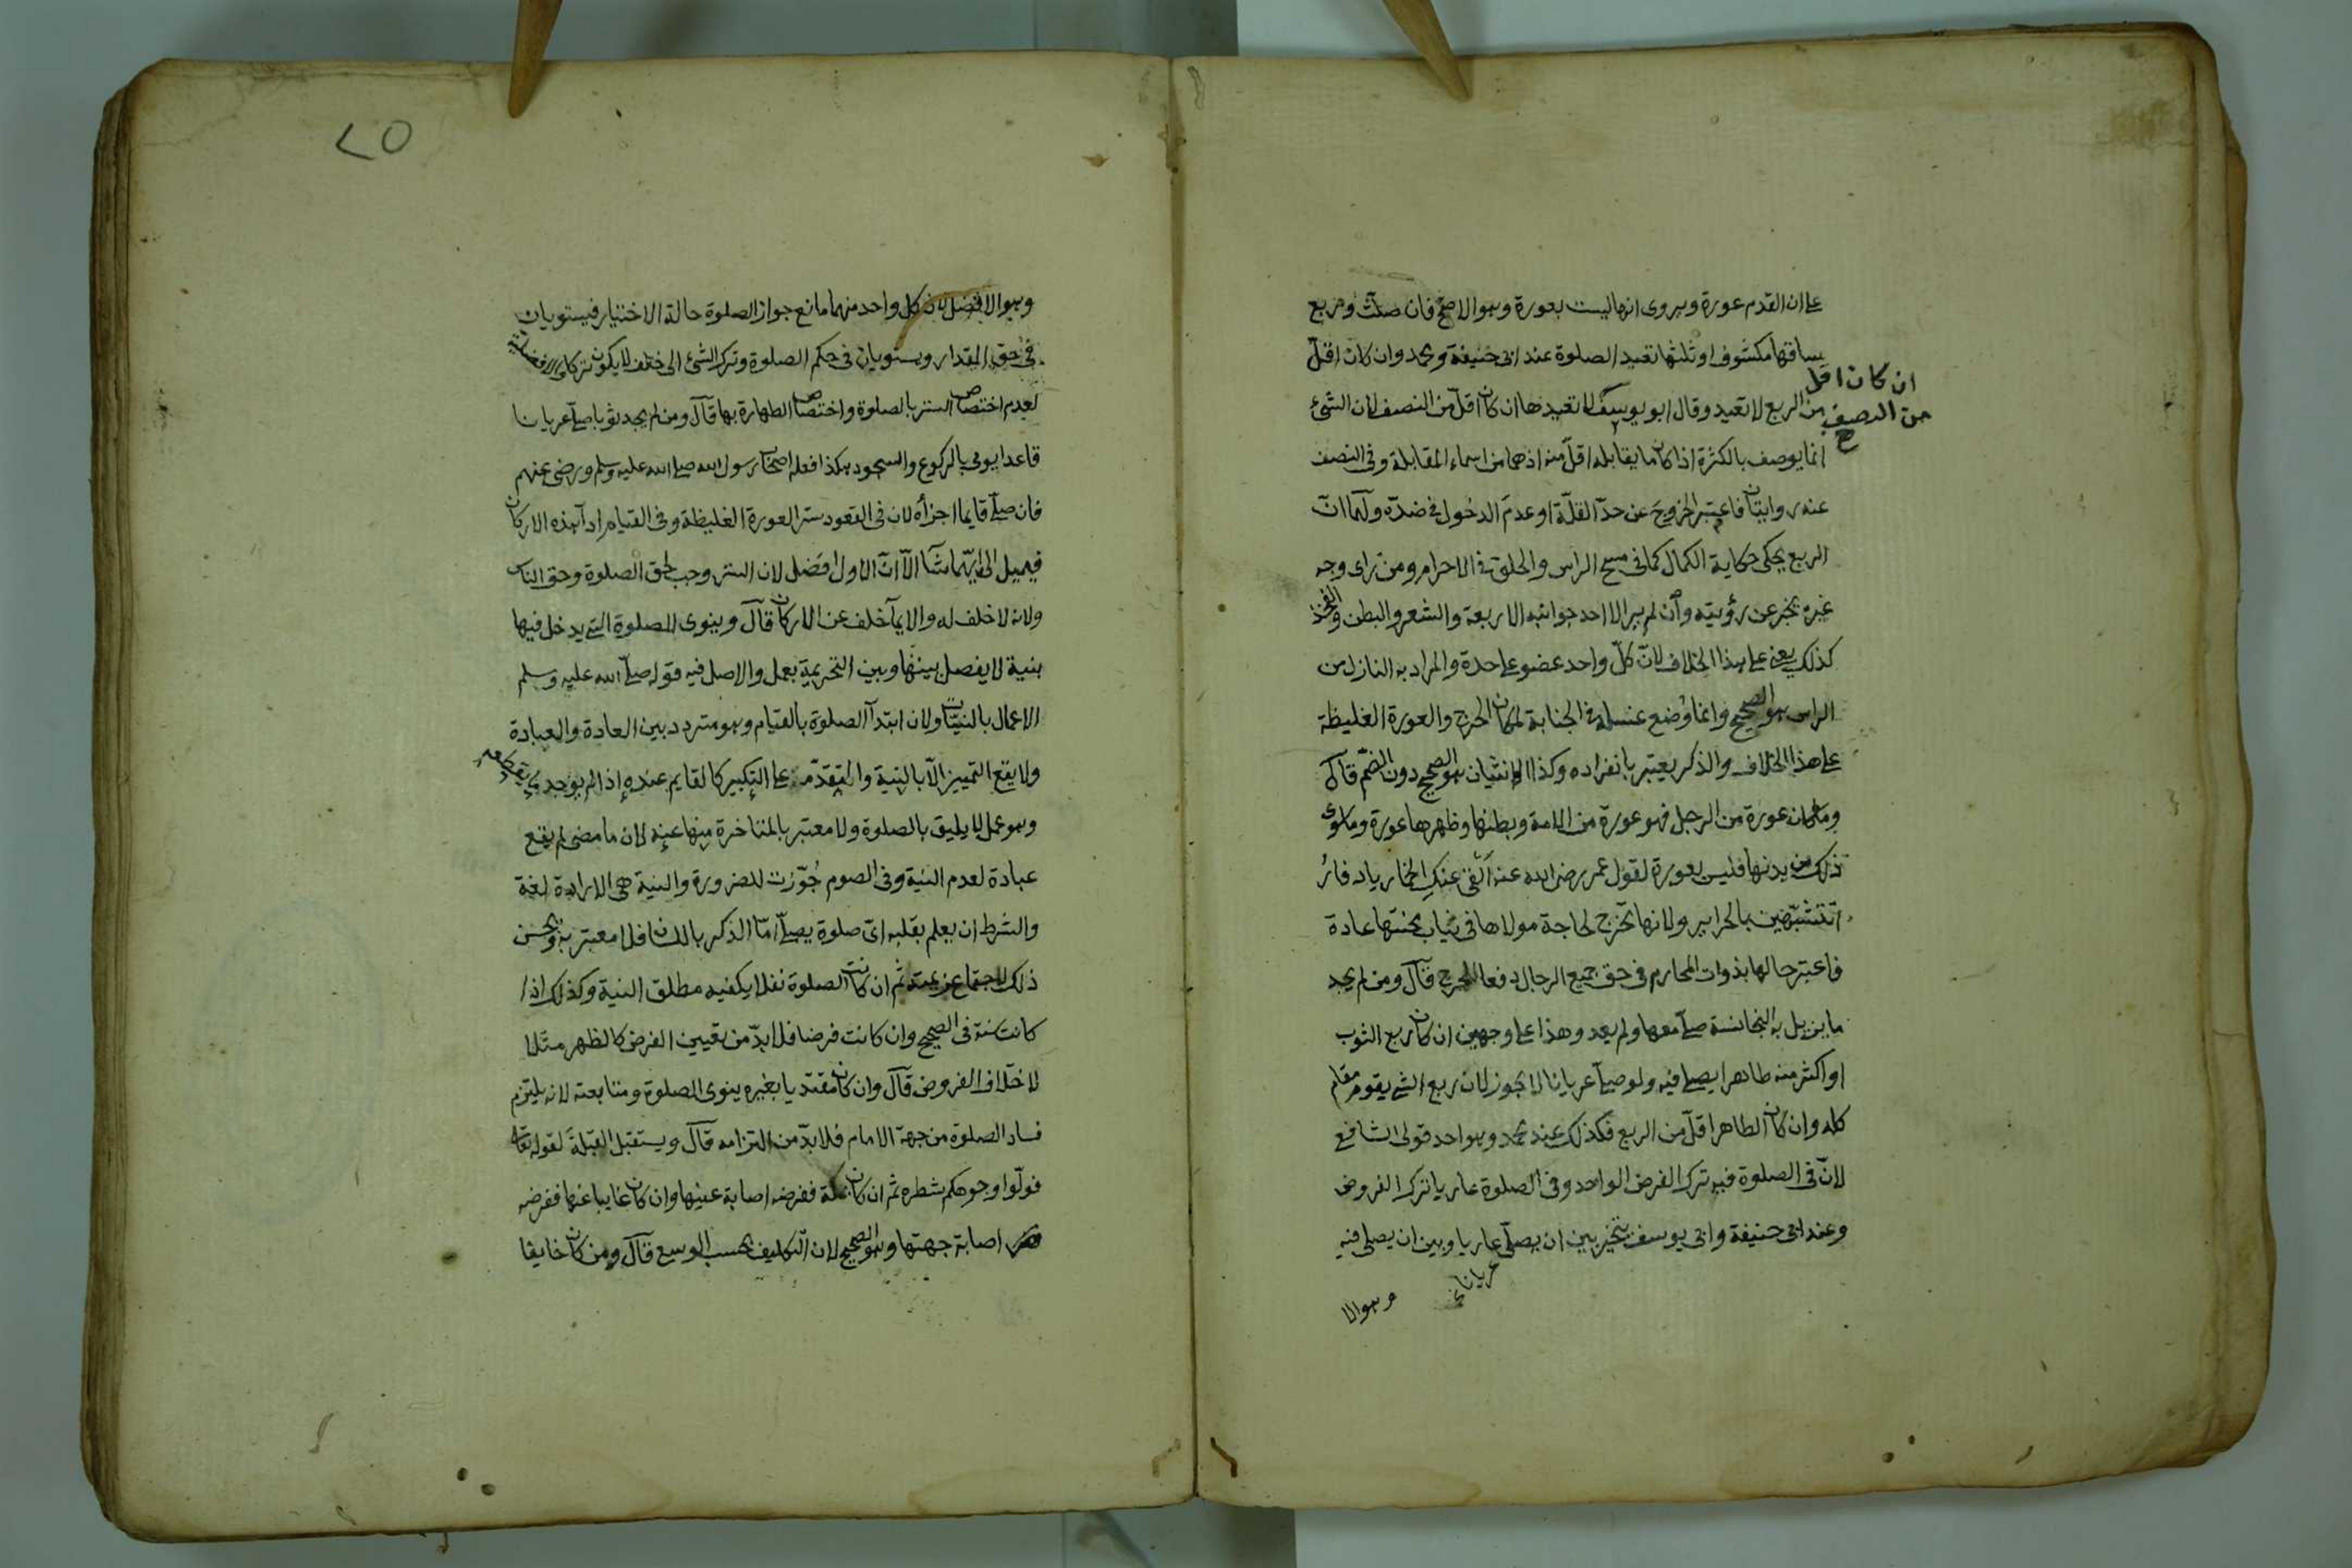 على ان القدم عورة ويروى انها ليست بعورة وهو الاصح فان صلت وربع
ساقها مكشوف او ثلثها تعيد الصلوة عند ابى حنيفة ومحمد وان كان اقل
ان كان اقل
من النصف
صح
من الربع لا تعيد وقال ابو يوسف لا تعيدها ان كان اقل من النصف لان الشئ
انما يوصف بالكثرة اذا كان ما يقابله اقل منه اذ هما من اسماء المقابلة وفى النصف
عنه روايتان فاعتبر الخروج عن حد القلة او عدم الدخول فى ضده ولهما ان
الربع يحكى حكاية الكمال كما فى مسح الراس والحلق فى الاحرام ومن راى وجه
غيره يخبر عن رؤيته وان لم ير الا احد جوانبه الاربعة والشعر والبطن والفخذ
كذلك يعنى على هذا الخلاف لان كل واحد عضو على حدة والمراد به النازل من
الراس هو الصحيح وانما وضع غسله فى الجنابة لمكان الحرج والعورة الغليظة
على هذا الخلاف والذكر يعتبر بانفراده وكذا الانثيان هو الصحيح دون الضم قال
وما كان عورة من الرجل فهو عورة من الامة وبطنها وظهرها عورة وما سوى
ذلك من بدنها فليس بعورة لقول عمر رضى الله عنه القى عنك الخمار يا دفار
اتتشبهين بالحراير ولانها تخرج لحاجة مولاها فى ثياب مهنتها عادة
فاعتبر حالها بذوات المحارم فى حق جميع الرجال دفعا للحرج قال ومن لم يجد
ما يزيل به النجاسة صلى معها ولم يعد وهذا على وجهين ان كان ربع الثوب
او اكثر منه طاهرا يصلى فيه ولو صلى عريانا لا يجوز لان ربع الشئ يقوم مقام
كله وان كان الطاهر اقل من الربع فكذلك عند محمد وهو احد قولى الشافعى
لان فى الصلوة فيه ترك الفرض الواحد وفى الصلوة عاريا ترك الفروض
وعند ابى حنيفة وابى يوسف يتخير بين ان يصلى عاريا وبين ان يصلى فيه
عريانا
وهو الا
٢٥
وهو الافضل لان كل واحد منهما مانع جواز الصلوة حالة الاختيار فيستويان
فى حق المقدار ويستويان فى حكم الصلوة وترك الشئ الى خلف لا يكون تركا والافضلية
لعدم اختصاص الستر بالصلوة واختصاص الطهارة بها قال ومن لم يجد ثوبا صلى عريانا
قاعدا يومى بالركوع والسجود هكذا فعله اصحاب رسول الله صلى الله عليه وسلم ورضى عنهم
فان صلى قايما اجزأه لان فى القعود ستر العورة الغليظة وفى القيام اداء هذه الاركان
فيميل الى ايهما شاء الا ان الاول افضل لان الستر وجب لحق الصلوة وحق الناس
ولانه لا خلف له والايماء خلف عن الاركان قال وينوى للصلوة التى يدخل فيها
بنية لا يفصل بينها وبين التحريمة بعمل والاصل فيه قوله صلى الله عليه وسلم
الاعمال بالنيات ولان ابتداء الصلوة بالقيام وهو متردد بين العادة والعبادة
ولا يقع التمييز الا بالنية والمتقدمة على التكبير كالقايم عنده اذا لم يوجد ما يقطعه
وهو عمل لا يليق بالصلوة ولا معتبر بالمتاخرة منها عنه لان ما مضى لم يقع
عبادة لعدم النية وفى الصوم جوزت للضرورة والنية هى الارادة لغة
والشرط ان يعلم بقلبه اى صلوة يصلى اما الذكر باللسان فلا معتبر به ويحسن
ذلك لاجتماع عزيمته ثم ان كانت الصلوة نفلا يكفيه مطلق النية وكذلك اذا
كانت سنة فى الصحيح وان كانت فرضا فلا بد من تعيين الفرض كالظهر مثلا
لاختلاف الفروض قال وان كان مقتديا بغيره ينوى الصلوة ومتابعته لانه يلتزم
فساد الصلوة من جهة الامام فلا بد من التزامه قال ويستقبل القبلة لقوله تعالى
فولوا وجوهكم شطره ثم ان كان بمكة ففرضه اصابة عينها وان كان غايبا عنها ففرضه
اصابة جهتها وهو الصحيح لان التكليف بحسب الوسع قال ومن كان خايفا